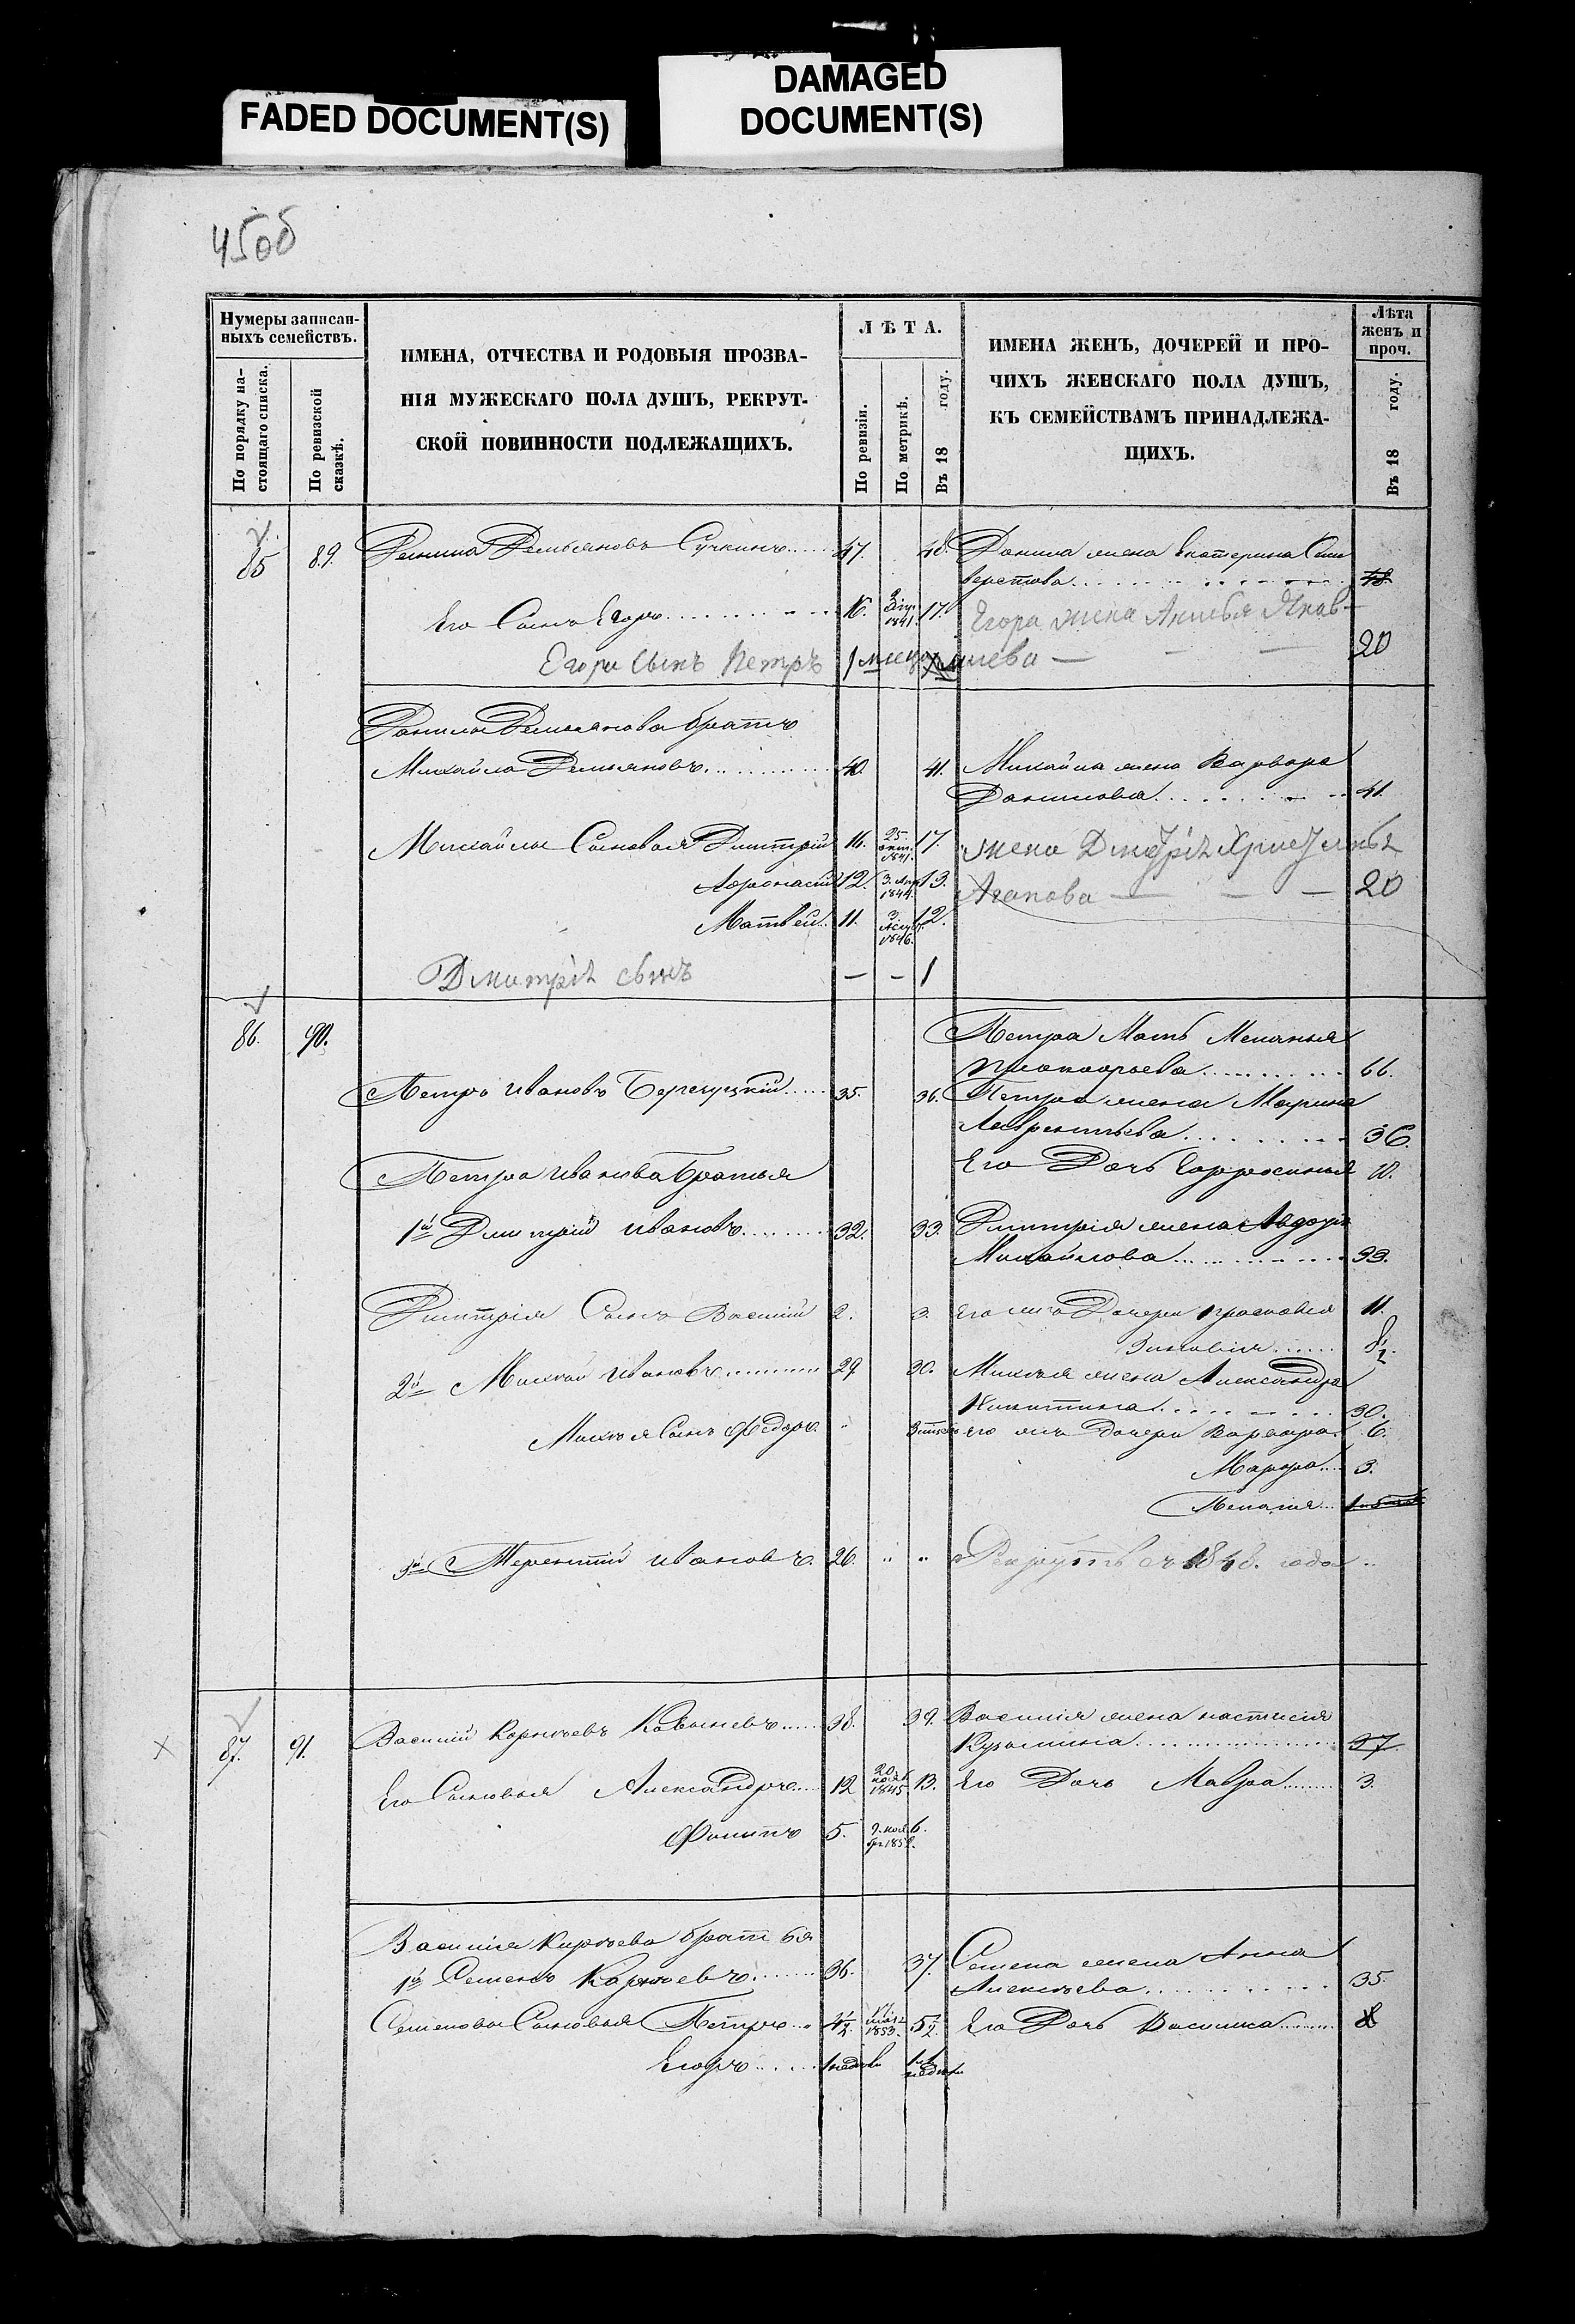 FADED DOCUMENT(S)
DAMAGED
DOCUMENT(S)
45об
Нумеры записан-
ныхъ семействъ.
По порядку на-
стоящаго списка.
По ревизской
сказкѣ.
ИМЕНА, ОТЧЕСТВА И РОДОВЫЯ ПРОЗВА-
НІЯ МУЖЕСКАГО ПОЛА ДУШЪ, РЕКРУТ-
СКОЙ ПОВИННОСТИ ПОДЛЕЖАЩИХЪ.
ЛѢТА.
По ревизіи.
По метрикѣ.
Въ 18 году.
ИМЕНА ЖЕНЪ, ДОЧЕРЕЙ И ПРО-
ЧИХЪ ЖЕНСКАГО ПОЛА ДУШЪ,
КЪ СЕМЕЙСТВАМЪ ПРИНАДЛЕЖА-
ЩИХЪ.
Лѣта
женъ и
проч.
Въ 18 году.
85 89. Данила Демьяновъ Сучкинъ 47. 48. Данила жена Екатерина Сели
верстова 48.
Его Сынъ Егоръ 16. 1841. 17. Егора жена Акилья Яков-
Егора Сынъ Петръ 1 месец лева 20
Данилы Демьянова братъ
Михайло Демьяновъ 40. 41. Михайла жена Варвара
Данилова 41.
Михайлы Сыновья Дмитрій 16. 25. окт. 1841. 17. жена Дмитрія
Афонасій 12. 3. 1844. 13. Агапова 20
Матвей 11. 3. 1846. 12.
Дмитрія сынъ — — 1
86. 90. Петра Мать Меланья
Прокофьева 66.
Петръ Ивановъ 35. 36. Петра жена Марина
Лаврентьева 36.
Петра Иванова братья Его Дочь Ефросинья 10.
1й Дмитрій Ивановъ 32. 33. Дмитрія жена Авдотья
Михайлова 33.
Дмитрія Сынъ Василій 2. 3. Его же Дочери Прасковья 11.
Зиновія
2й Михей Ивановъ 29 30. Михея жена Александра
Никитина 30.
Михея Сынъ Федоръ " Его же дочери Варвара 6.
Марфа 3.
3й Терентій Ивановъ. 26. " " Рекрутъ съ 1848. года "
87. 91. Василій Корнѣевъ 38. 39. Василія жена Настасія
Кузьмина 37.
Его Сыновья Александръ 12 20 нояб. 1845 13. Его Дочь Мавра 3.
Филипъ 5. 9. нояб. 6.
Василія Корнѣева братья
1й Семенъ Корнѣевъ 36. 37. Семена жена Анна
Алексѣева 35.
Семеновы Сыновья Петръ 4½. 1853. 5½. Его Дочь Василиса 8
Егоръ 1 недѣли